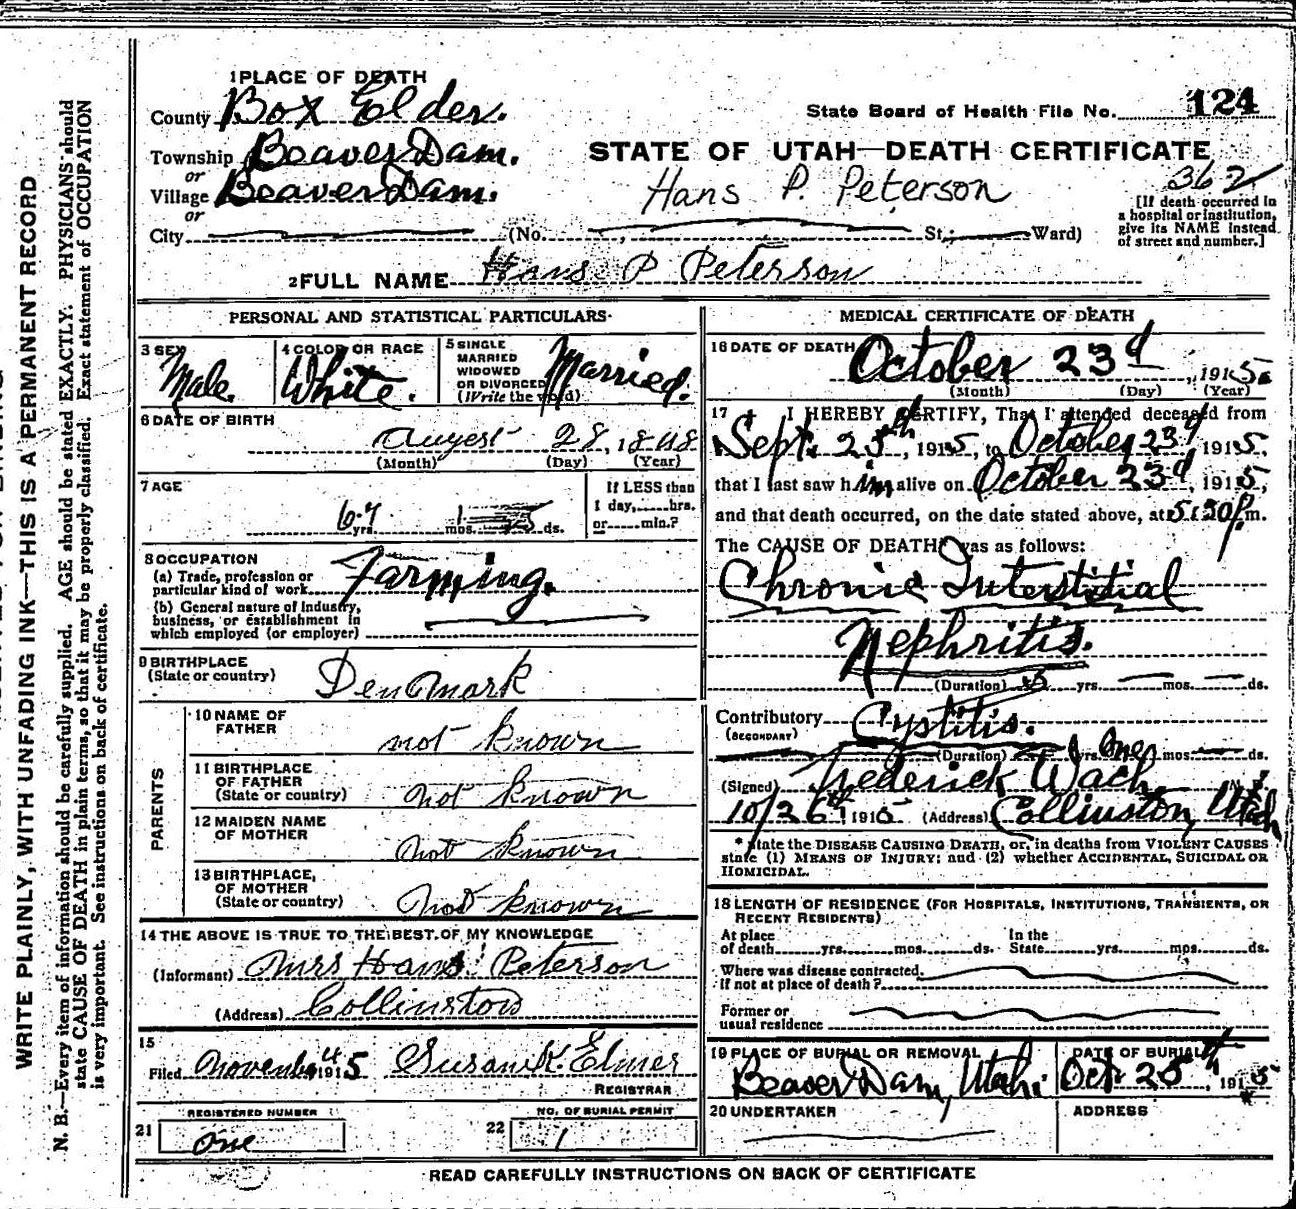 1 PLACE OF DEATH
County Box Elder.
State Board of Health File No. 124
Township Beaver Dam.
or
STATE OF UTAH—DEATH CERTIFICATE
Village Beaver Dam.
or
Hans P. Peterson
362
[If death occurred in
a hospital or institution,
give its NAME instead
of street and number.]
City (No. St.; Ward)
2 FULL NAME Hans P Peterson
PERSONAL AND STATISTICAL PARTICULARS
3 SEX Male.
4 COLOR OR RACE White.
5 SINGLE
MARRIED
WIDOWED
OR DIVORCED
(Write the word) Married.
6 DATE OF BIRTH
Augest 28, 1848
(Month) (Day) (Year)
7 AGE
67 yrs. 1 mos. 25 ds.
If LESS than
1 day, hrs.
or min.?
8 OCCUPATION
(a) Trade, profession or
particular kind of work Farming.
(b) General nature of Industry,
business, or establishment in
which employed (or employer)
9 BIRTHPLACE
(State or country) Denmark
PARENTS
10 NAME OF
FATHER not known
11 BIRTHPLACE
OF FATHER
(State or country) not known
12 MAIDEN NAME
OF MOTHER not known
13 BIRTHPLACE,
OF MOTHER
(State or country) not known
14 THE ABOVE IS TRUE TO THE BEST OF MY KNOWLEDGE
(Informant) Mrs Hans Peterson
(Address) Collinston
15
Filed November 4 1915 Susan K. Elmer
REGISTRAR
REGISTERED NUMBER
21 One
NO. OF BURIAL PERMIT
22 1
MEDICAL CERTIFICATE OF DEATH
16 DATE OF DEATH
October 23d, 1915.
(Month) (Day) (Year)
17 I HEREBY CERTIFY, That I attended deceased from
Sept. 25th, 1915, to October 23d 1915,
that I last saw him alive on October 23d, 1915,
and that death occurred, on the date stated above, at 5:30 p.m.
The CAUSE OF DEATH was as follows:
Chronic Interstitial
Nephritis.
(Duration) yrs. mos. ds.
Contributory Cystitis.
(SECONDARY)
(Duration) yrs. One mos. ds.
(Signed) Frederick Wach
10/26th 1915 (Address) Collinston, Utah
* State the DISEASE CAUSING DEATH, or, in deaths from VIOLENT CAUSES
state (1) MEANS OF INJURY; and (2) whether ACCIDENTAL, SUICIDAL OR
HOMICIDAL.
18 LENGTH OF RESIDENCE (FOR HOSPITALS, INSTITUTIONS, TRANSIENTS, OR
RECENT RESIDENTS)
At place In the
of death yrs. mos. ds. State yrs. mos. ds.
Where was disease contracted,
if not at place of death?
Former or
usual residence
19 PLACE OF BURIAL OR REMOVAL
Beaver Dam, Utah.
DATE OF BURIAL
Oct. 25th, 1915
20 UNDERTAKER
ADDRESS
READ CAREFULLY INSTRUCTIONS ON BACK OF CERTIFICATE
WRITE PLAINLY, WITH UNFADING INK—THIS IS A PERMANENT RECORD
N. B.—Every item of information should be carefully supplied. AGE should be stated EXACTLY. PHYSICIANS should
state CAUSE OF DEATH in plain terms, so that it may be properly classified. Exact statement of OCCUPATION
is very important. See instructions on back of certificate.